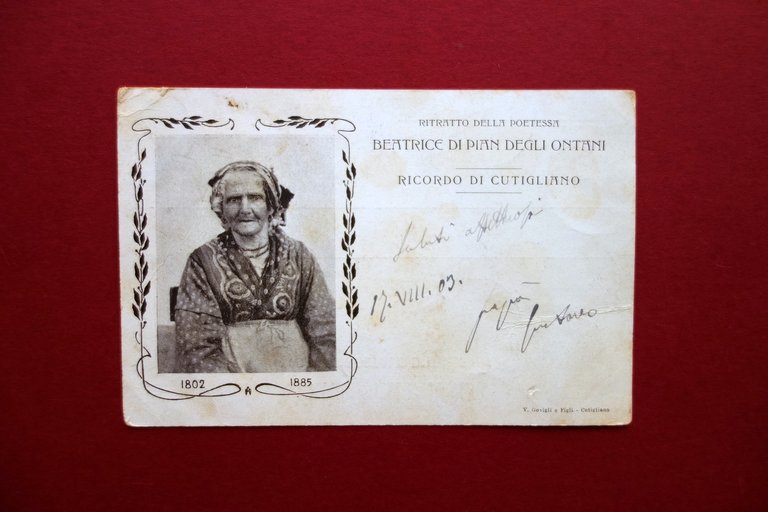 RITRATTO DELLA POETESSA
BEATRICE DI PIAN DEGLI ONTANI
RICORDO DI CUTIGLIANO
Saluti affettuosi
17. VIII. 03.
papà
Gustavo
1802 1885
V. Govigli e Figli - Cutigliano